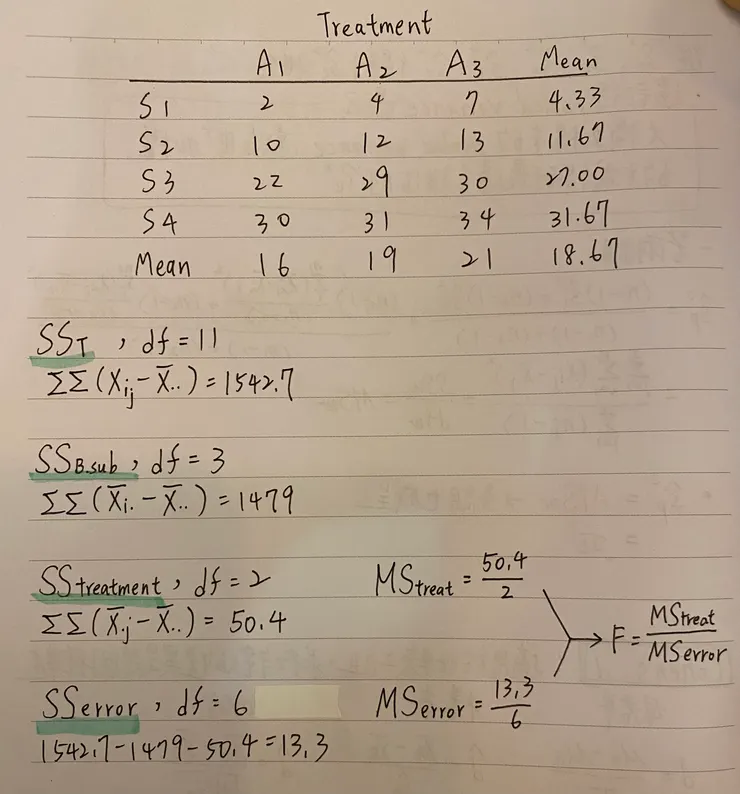 Treatment
A1 A2 A3 Mean
S1 2 4 7 4.33
S2 10 12 13 11.67
S3 22 29 30 27.00
S4 30 31 34 31.67
Mean 16 19 21 18.67
SS_T , df = 11
ΣΣ(X_ij - X̄..) = 1542.7
SS_B.sub , df = 3
ΣΣ(X̄_i. - X̄..) = 1479
SS_treatment , df = 2 MS_treat = 50.4/2
ΣΣ(X̄._j - X̄..) = 50.4
F = MS_treat/MS_error
SS_error , df = 6 MS_error = 13.3/6
1542.7-1479-50.4=13.3